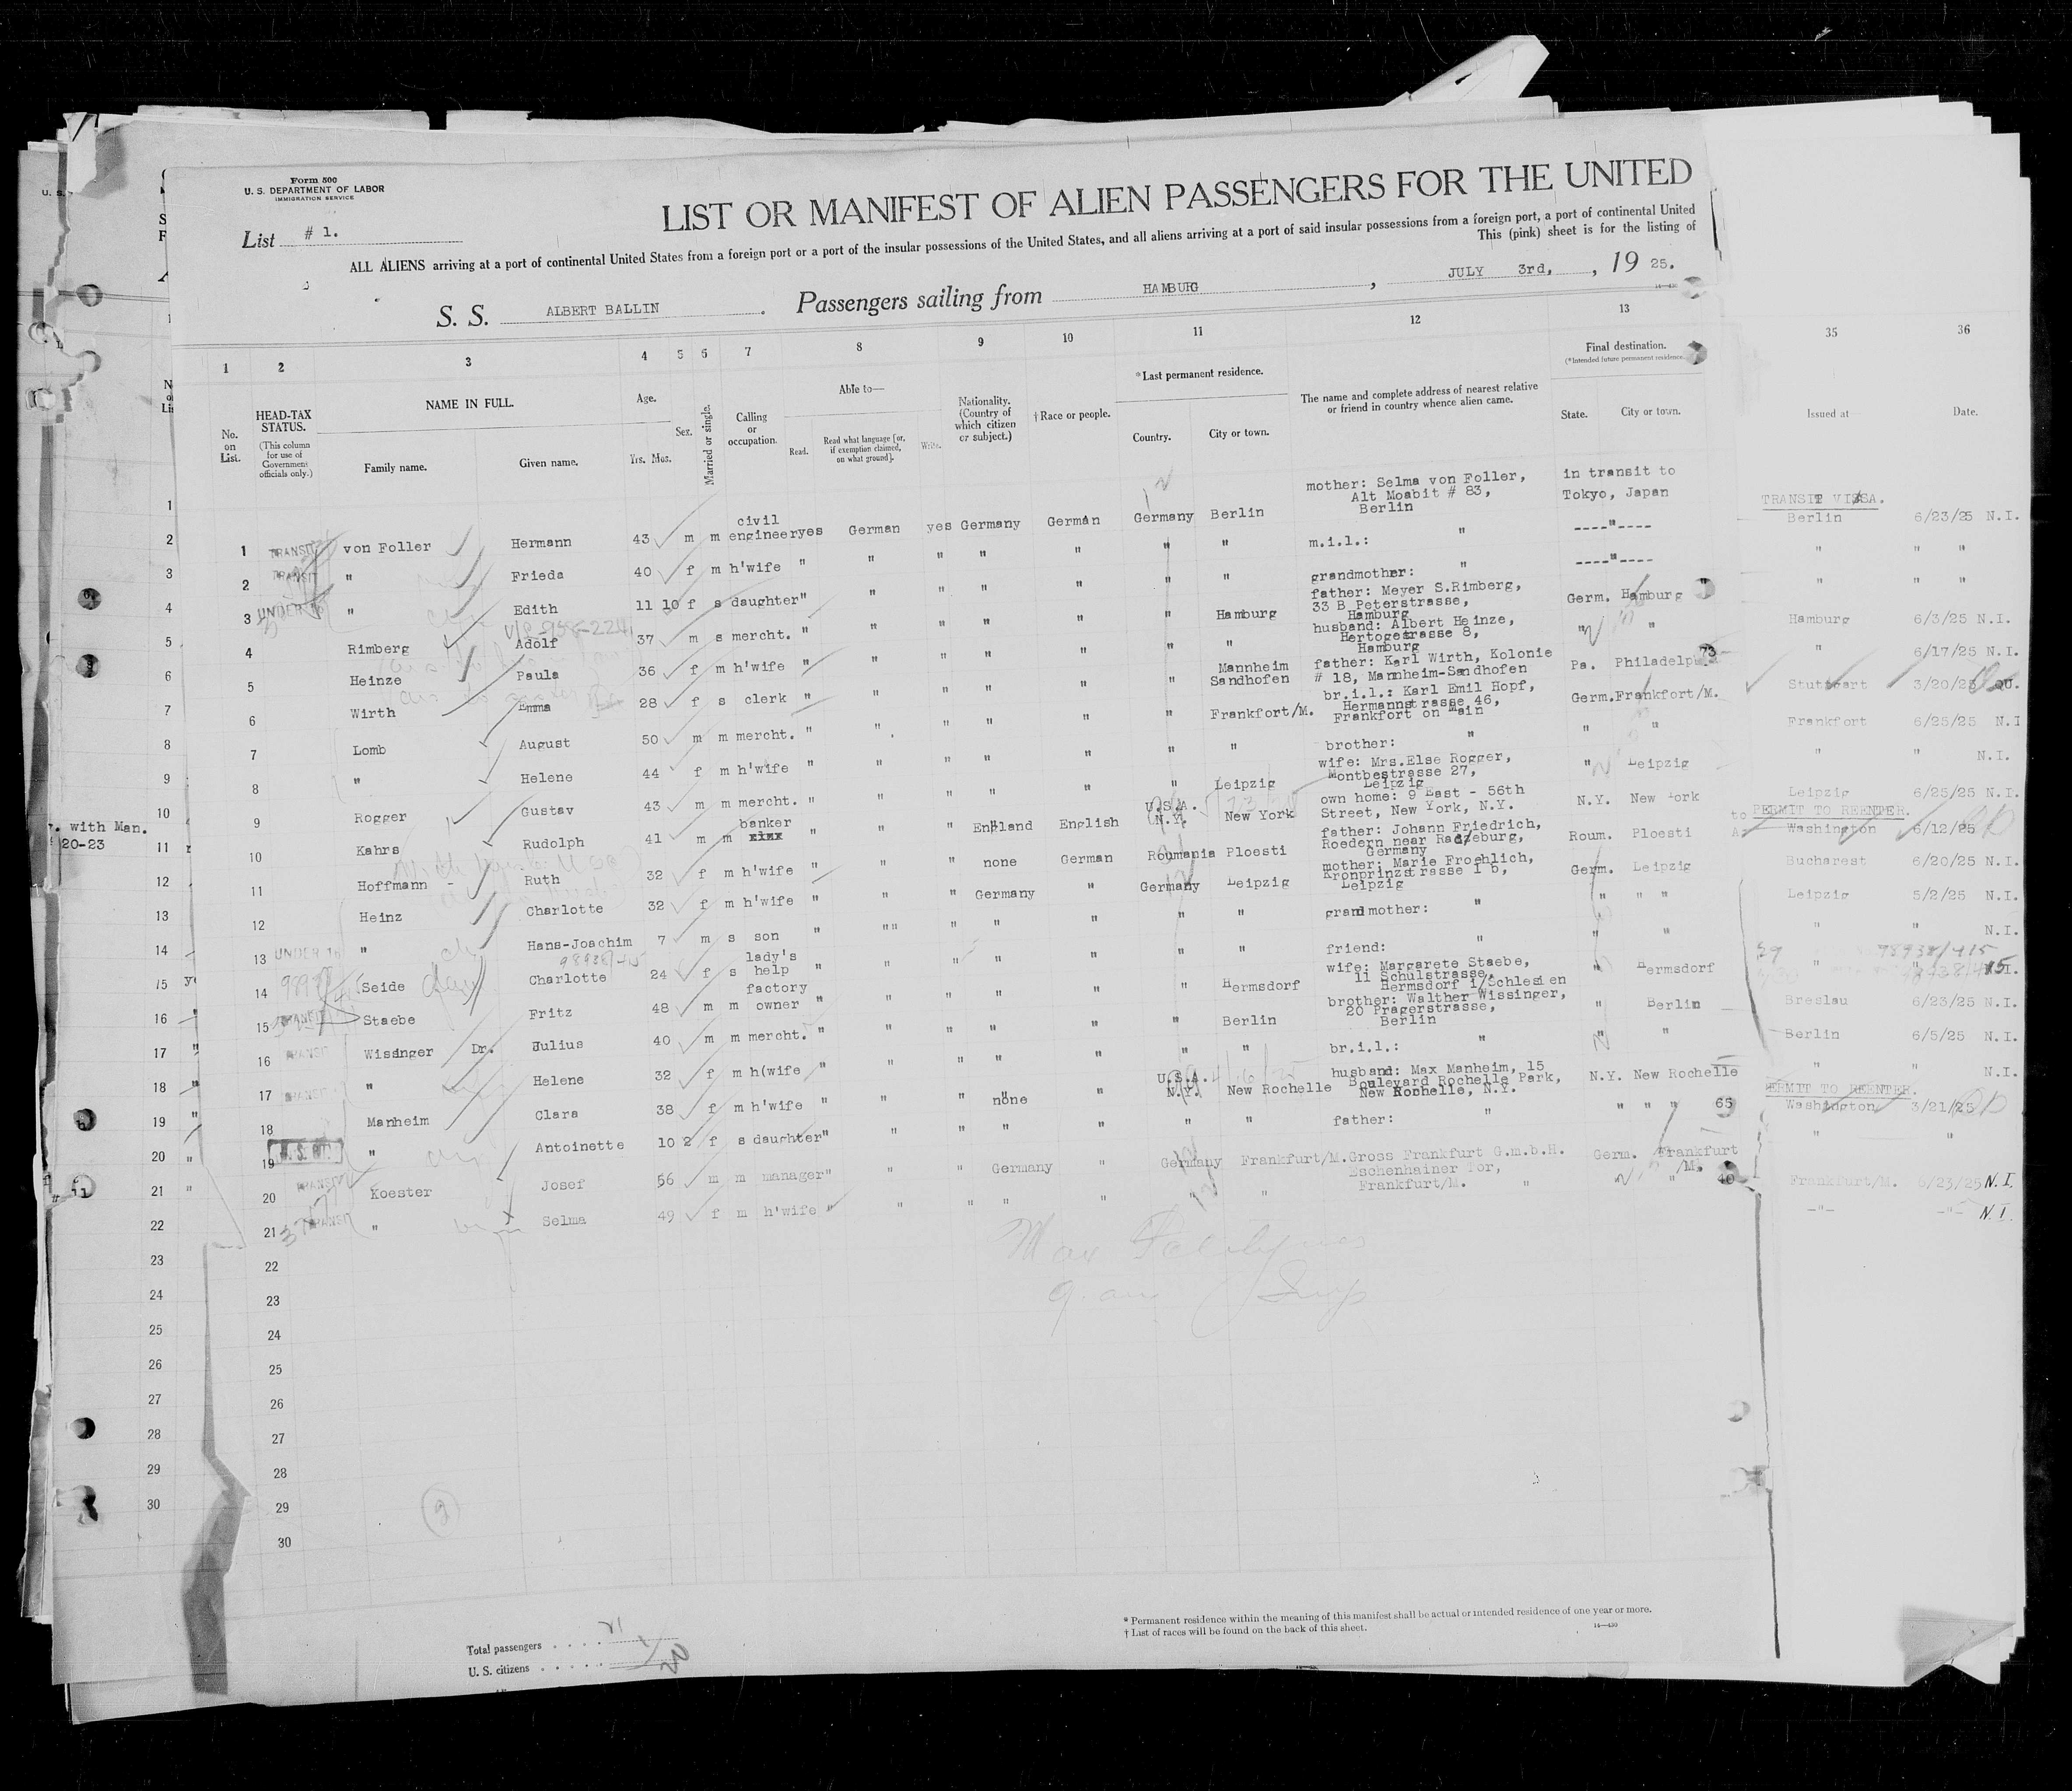 Form 500
U. S. DEPARTMENT OF LABOR
IMMIGRATION SERVICE
List # 1.
LIST OR MANIFEST OF ALIEN PASSENGERS FOR THE UNITED
ALL ALIENS arriving at a port of continental United States from a foreign port or a port of the insular possessions of the United States, and all aliens arriving at a port of said insular possessions from a foreign port, a port of continental United
This (pink) sheet is for the listing of
S. S. ALBERT BALLIN. Passengers sailing from HAMBURG, JULY 3rd, , 19 25.
1 2 3 4 5 6 7 8 9 10 11 12 13 35 36
No. on List.
HEAD-TAX STATUS.
(This column for use of Government officials only.)
NAME IN FULL.
Family name. Given name.
Age.
Yrs. Mos.
Sex.
Married or single.
Calling or occupation.
Able to—
Read. Read what language [or, if exemption claimed, on what ground]. Write.
Nationality. (Country of which citizen or subject.)
† Race or people.
* Last permanent residence.
Country. City or town.
The name and complete address of nearest relative or friend in country whence alien came.
Final destination.
(*Intended future permanent residence.)
State. City or town.
Issued at— Date.
1 TRANSIT von Foller Hermann 43 m m civil engineer yes German yes Germany German Germany Berlin mother: Selma von Foller, Alt Moabit # 83, Berlin in transit to Tokyo, Japan TRANSIT VISA. Berlin 6/23/25 N.I.
2 TRANSIT " Frieda 40 f m h'wife " " " " " " " m.i.l.: " ----"---- " " "
3 UNDER 16 " Edith 11 10 f s daughter " " " " " " " grandmother: " ----"---- " " "
4 Rimberg Adolf 37 m s mercht. " " " " " " Hamburg father: Meyer S.Rimberg, 33 B Peterstrasse, Hamburg Germ. Hamburg Hamburg 6/3/25 N.I.
5 Heinze Paula 36 f m h'wife " " " " " " " husband: Albert Heinze, Hertogestrasse 8, Hamburg " " " 6/17/25 N.I.
6 Wirth Emma 28 f s clerk " " " " " " Mannheim Sandhofen father: Karl Wirth, Kolonie # 18, Mannheim-Sandhofen Pa. Stuttgart 3/20/25 QU.
7 Lomb August 50 m m mercht. " " " " " " Frankfort/M. br.i.l.: Karl Emil Hopf, Hermannstrasse 46, Frankfort on Main Germ. Frankfort/M. Frankfort 6/25/25 N.I
8 " Helene 44 f m h'wife " " " " " " " brother: " " " " " N.I.
9 Rogger Gustav 43 m m mercht. " " " " " " Leipzig wife: Mrs.Else Rogger, Montbestrasse 27, Leipzig " Leipzig Leipzig 6/25/25 N.I.
10 Kahrs Rudolph 41 m m banker " " " England English U.S.A. N.Y. New York own home: 9 East - 56th Street, New York, N.Y. N.Y. New York PERMIT TO REENTER. Washington 6/12/25
11 Hoffmann Ruth 32 f m h'wife " " " none German Roumania Ploesti father: Johann Friedrich, Roedern near Radeburg, Germany Roum. Ploesti Bucharest 6/20/25 N.I.
12 Heinz Charlotte 32 f m h'wife " " " Germany " Germany Leipzig mother: Marie Froehlich, Kronprinzstrasse 1 b, Leipzig Germ. Leipzig Leipzig 5/2/25 N.I.
13 UNDER 16 " Hans-Joachim 7 m s son " "" " " " " " grandmother: " " " " " N.I.
14 Seide Charlotte 24 f s lady's help " " " " " " " friend: " " " " " N.I.
98938/415
15 TRANSIT Staebe Fritz 48 m m factory owner " " " " " " Hermsdorf wife: Margarete Staebe, 11 Schulstrasse, Hermsdorf i/Schlesien " Hermsdorf Breslau 6/23/25 N.I.
16 TRANSIT Wissinger Dr. Julius 40 m m mercht. " " " " " " Berlin brother: Walther Wissinger, 20 Pragerstrasse, Berlin " Berlin Berlin 6/5/25 N.I.
17 TRANSIT " Helene 32 f m h(wife " " " " " " " br.i.l.: " " " " " N.I.
18 Manheim Clara 38 f m h'wife " " " none " U.S.A. N.Y. New Rochelle husband: Max Manheim, 15 Bouleyard Rochelle Park, New Rochelle, N.Y. N.Y. New Rochelle PERMIT TO REENTER. Washington 3/21/25
19 " Antoinette 10 2 f s daughter " " " " " " " father: " " " " 65 " "
20 TRANSIT Koester Josef 56 m m manager " " " Germany " Germany Frankfurt/M. Gross Frankfurt G.m.b.H. Eschenhainer Tor, Frankfurt/M. Germ. Frankfurt /M. Frankfurt/M. 6/23/25 N.I.
21 TRANSIT " Selma 49 f m h'wife " " " " " " " " " 40 -"- -"- N.I.
22
23
24
25
26
27
28
29
30
. with Man.
20-23
Total passengers . . . . 21
U. S. citizens . . . . .
* Permanent residence within the meaning of this manifest shall be actual or intended residence of one year or more.
† List of races will be found on the back of this sheet.